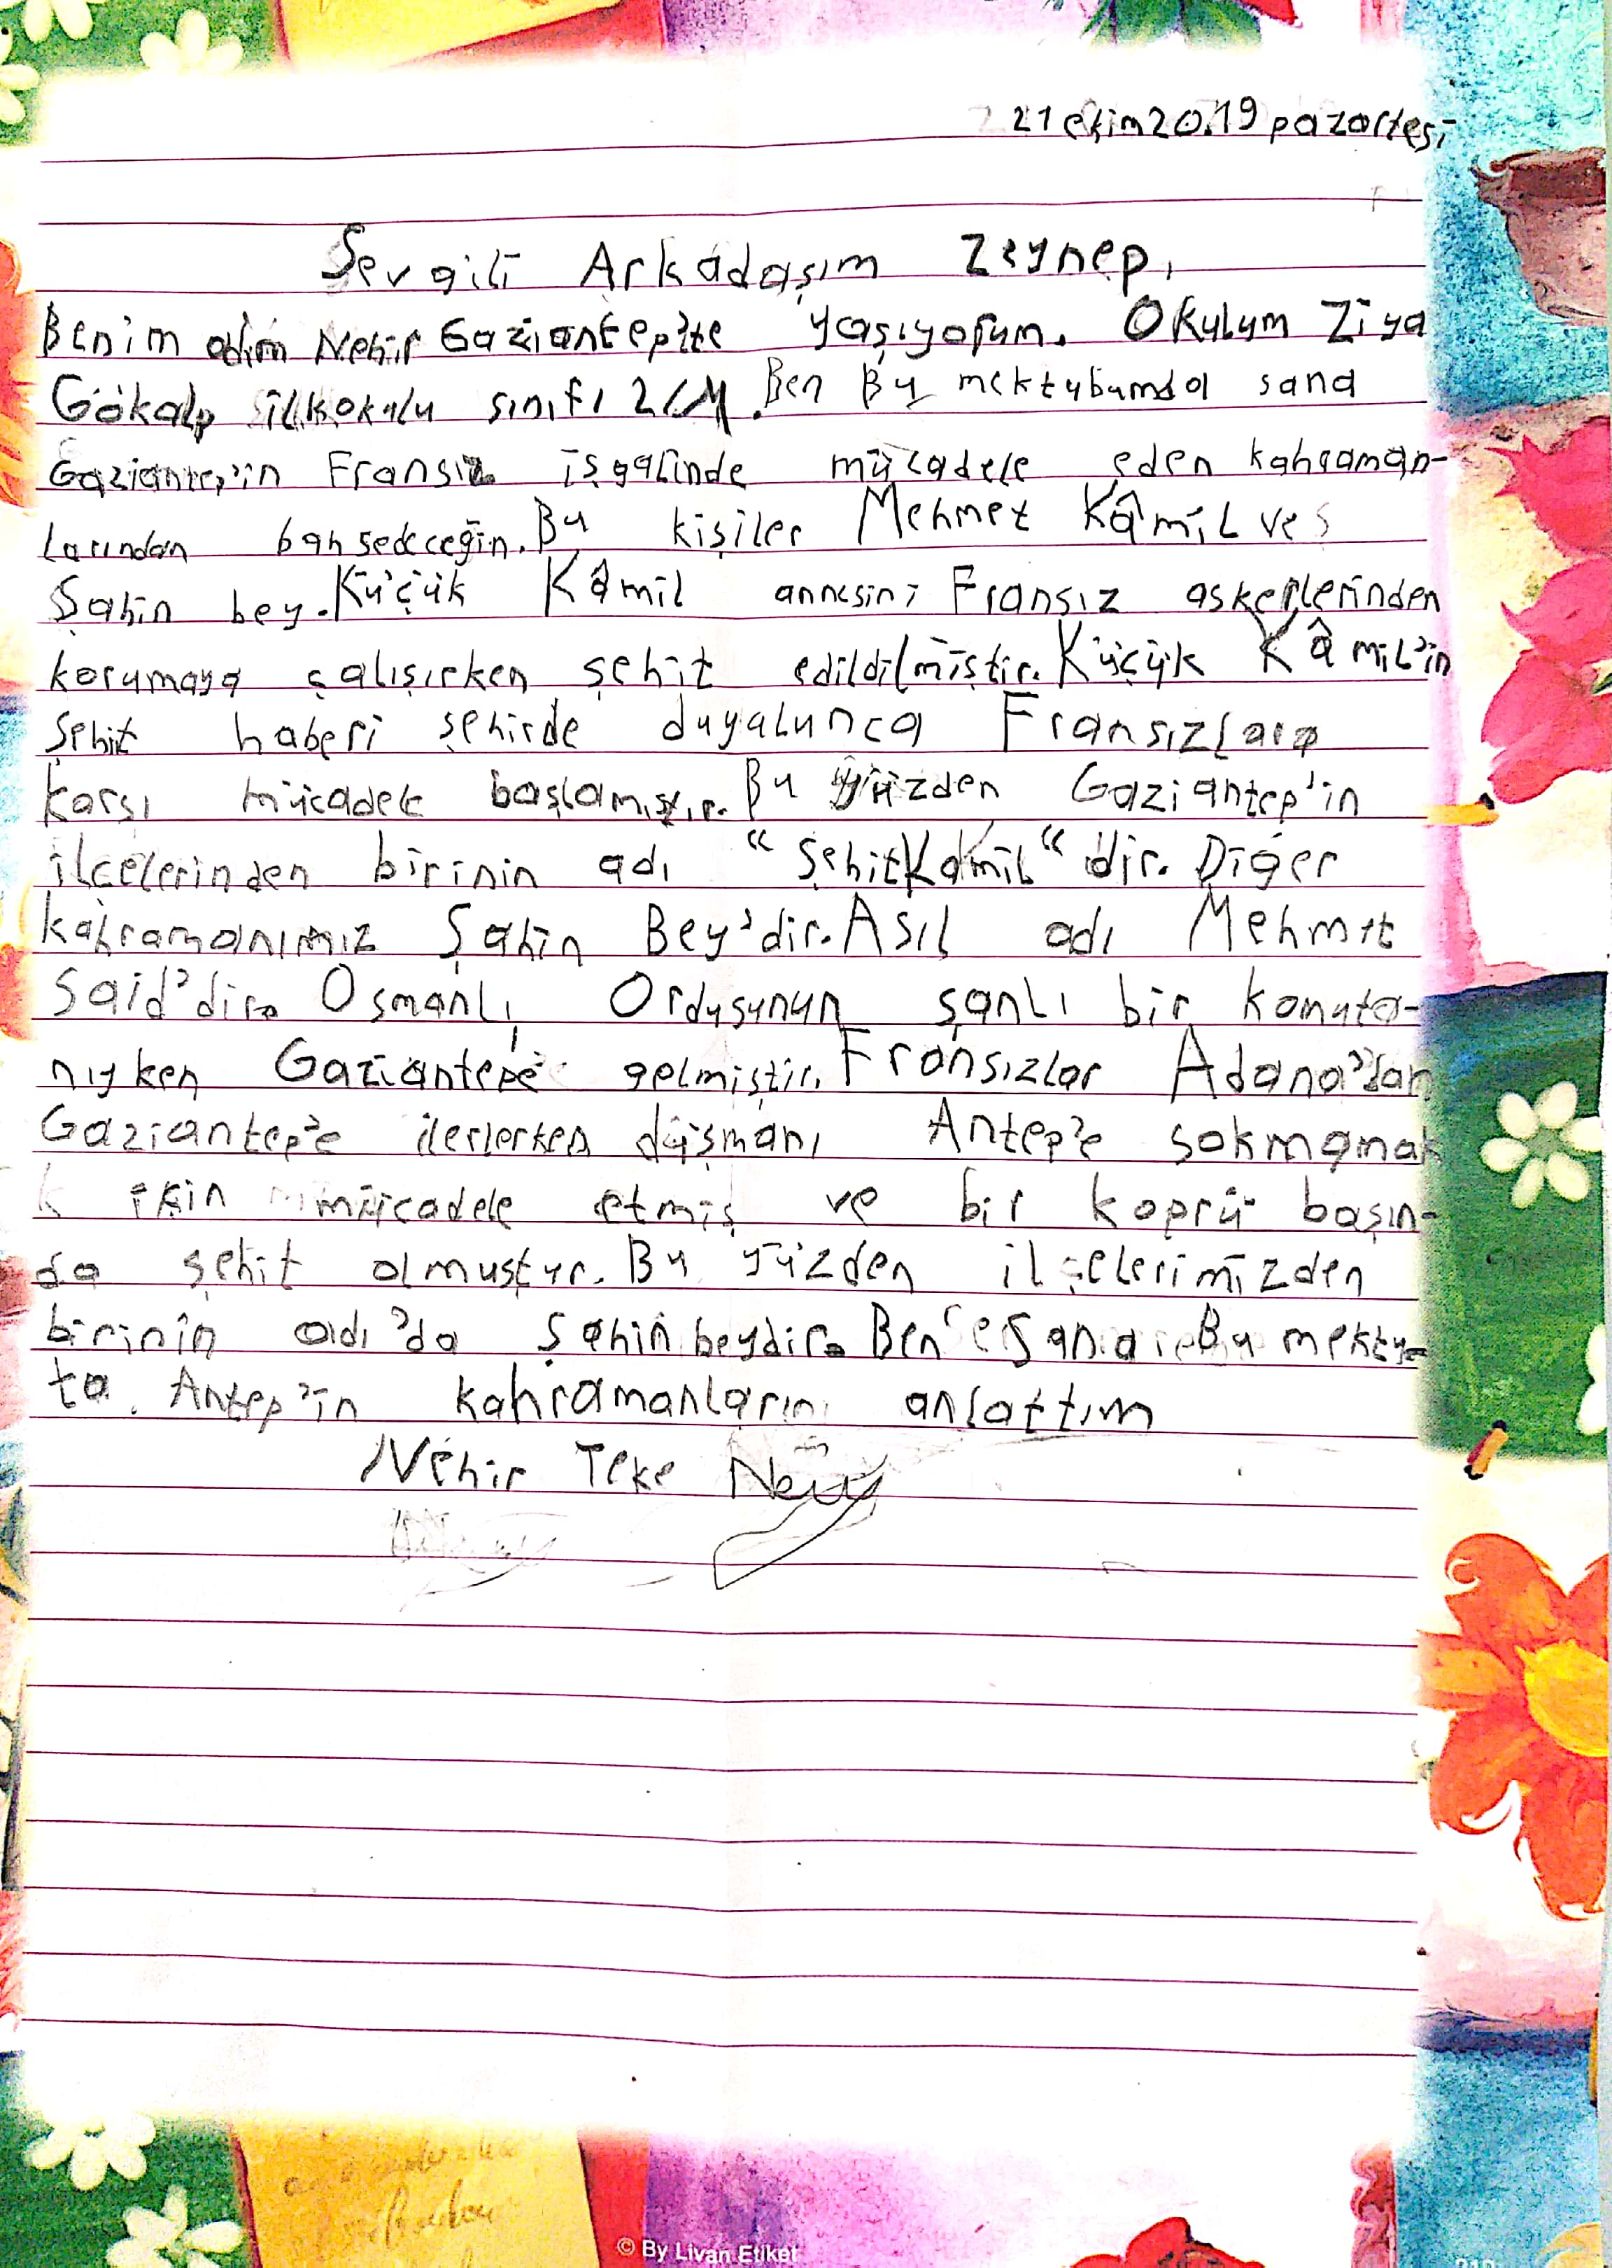 21 ekim 20.19 pazartesi
Sevgili Arkadaşım Zeynep,
Benim adım Nehir Gaziantep'te yaşıyorum. Okulum Ziya
Gökalp ilkokulu sınıfı 2/M. Ben Bu mektubumda sana
Gaziantep'in Fransız işgalinde mücadele eden kahraman-
larından bahsedeceğin. Bu kişiler Mehmet Kâmil ve
Şahin bey. Küçük Kâmil annesini Fransız askerlerinden
korumaya çalışırken şehit edildilmiştir. Küçük Kâmil'in
Şehit haberi şehirde duyalunca Fransızlara
karşı mücadele başlamıştır. Bu yüzden Gaziantep'in
ilçelerinden birinin adı "ŞehitKamil" dir. Diğer
kahramanımız Şahin Bey'dir. Asıl adı Mehmet
Said'dir. Osmanlı Ordusunun şanlı bir komuta-
nıyken Gaziantepe gelmiştir. Fransızlar Adana'dan
Gaziantep'e ilerlerken düşmanı Antep'e sokmamak
için mücadele etmiş ve bir koprü başın-
da şehit olmuştur. Bu yüzden ilçelerimizden
birinin adı'da Şahin beydir. Ben Sana Bu mektu-
ta. Antep'in kahramanlarını anlattım
Nehir Teke
© By Livan Etiket